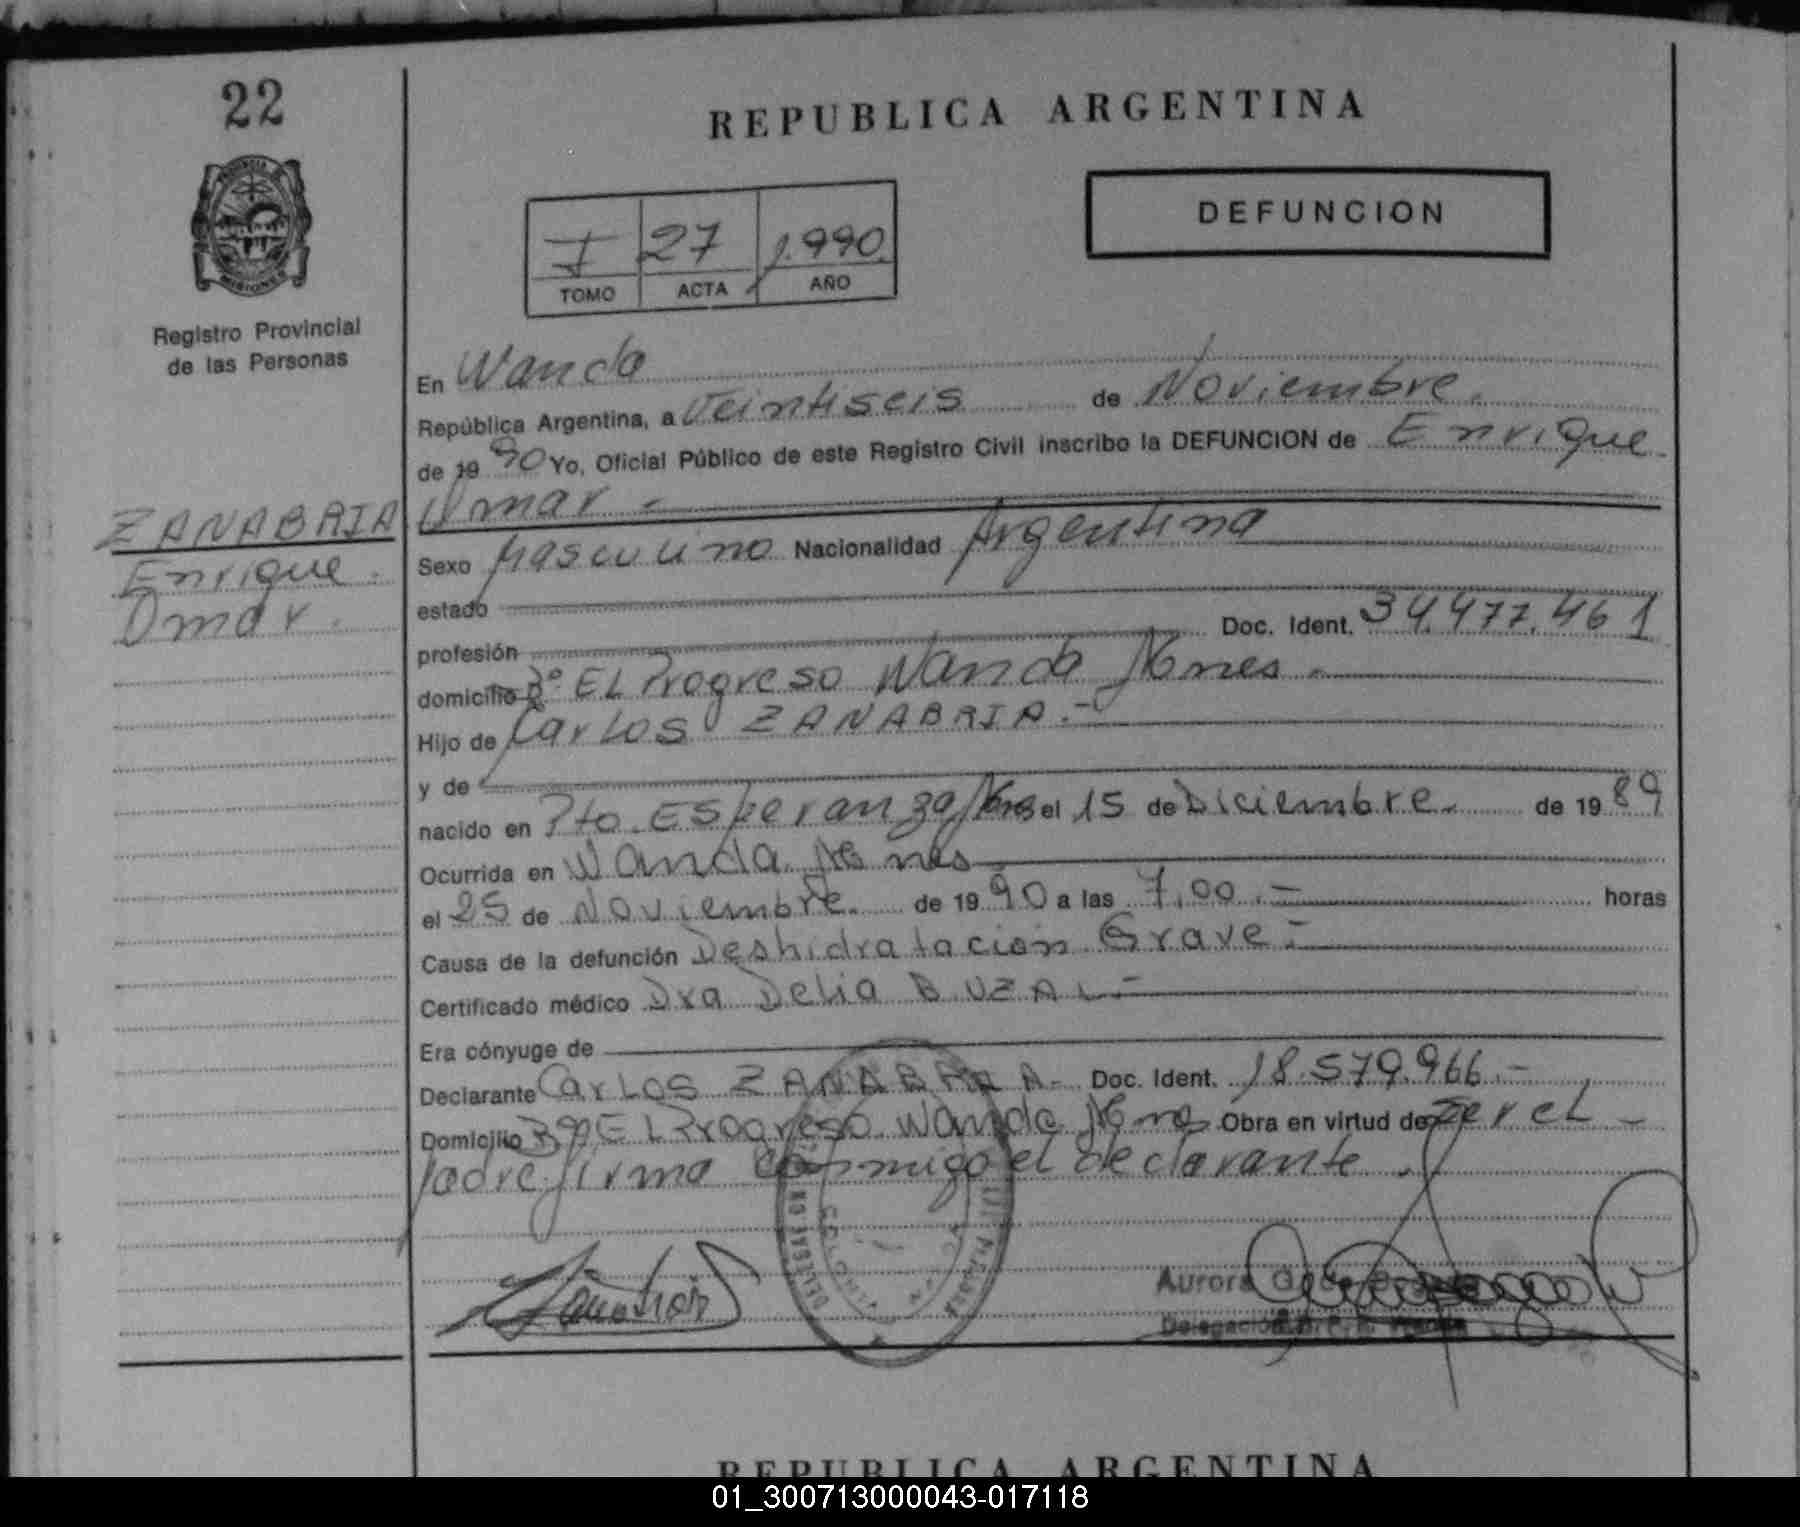 22
REPUBLICA ARGENTINA
DEFUNCION
I 27 1.990.
TOMO ACTA AÑO
MISIONES
Registro Provincial
de las Personas
En Wanda
República Argentina, a Veintiseis de Noviembre.
de 1990 Yo, Oficial Público de este Registro Civil inscribo la DEFUNCION de Enrique
Omar -
ZANABRIA
Enrique.
Omar.
Sexo Masculino Nacionalidad Argentina
estado
profesión Doc. Ident. 34.477.461
domicilio Bº EL Progreso Wanda Mnes.
Hijo de Carlos ZANABRIA.-
y de
nacido en Pto. Esperanza Mnes el 15 de Diciembre. de 1989
Ocurrida en Wanda Mnes
el 25 de Noviembre. de 1990 a las 7,00.- horas
Causa de la defunción Deshidratación Grave.-
Certificado médico Dra Delia BUZAL.-
Era cónyuge de
Declarante Carlos ZANABRIA- Doc. Ident. 18.579.966.-
Domicilio Bº EL Progreso Wanda Mnes Obra en virtud de ser el -
padre firma conmigo el declarante.
Aurora
Delegación
REPUBLICA ARGENTINA
01_300713000043-017118